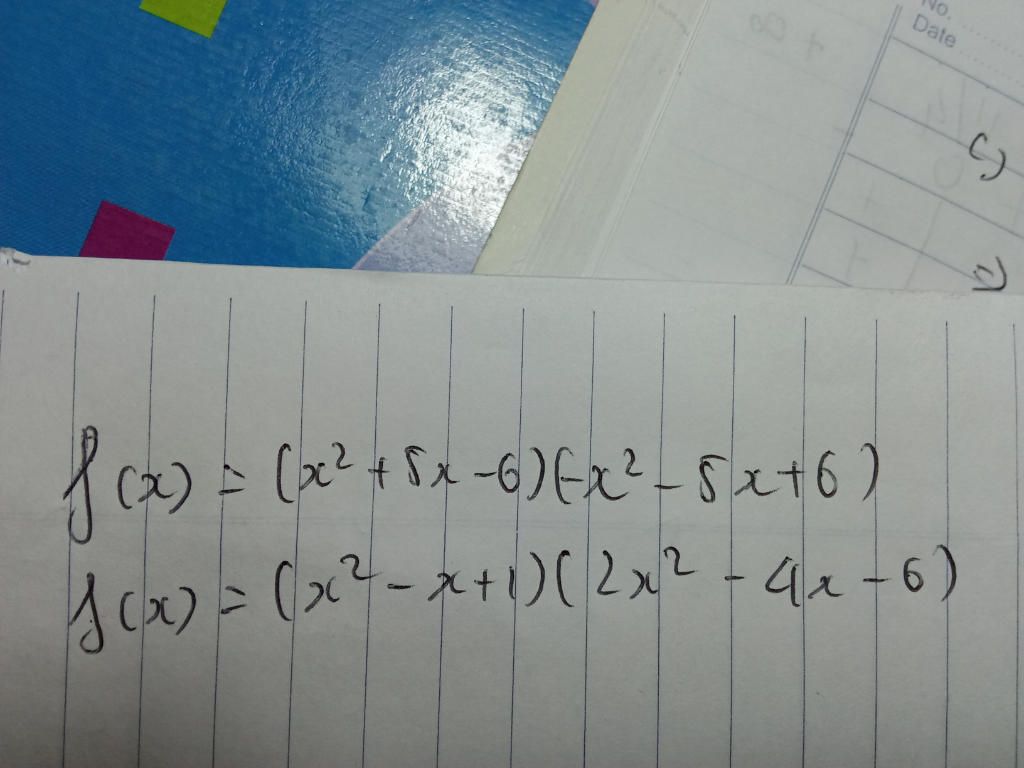 No.
Date
c)
=)
f(x) = (x² + 5x - 6)(-x² - 5x + 6)
f(x) = (x² - x + 1)(2x² - 4x - 6)